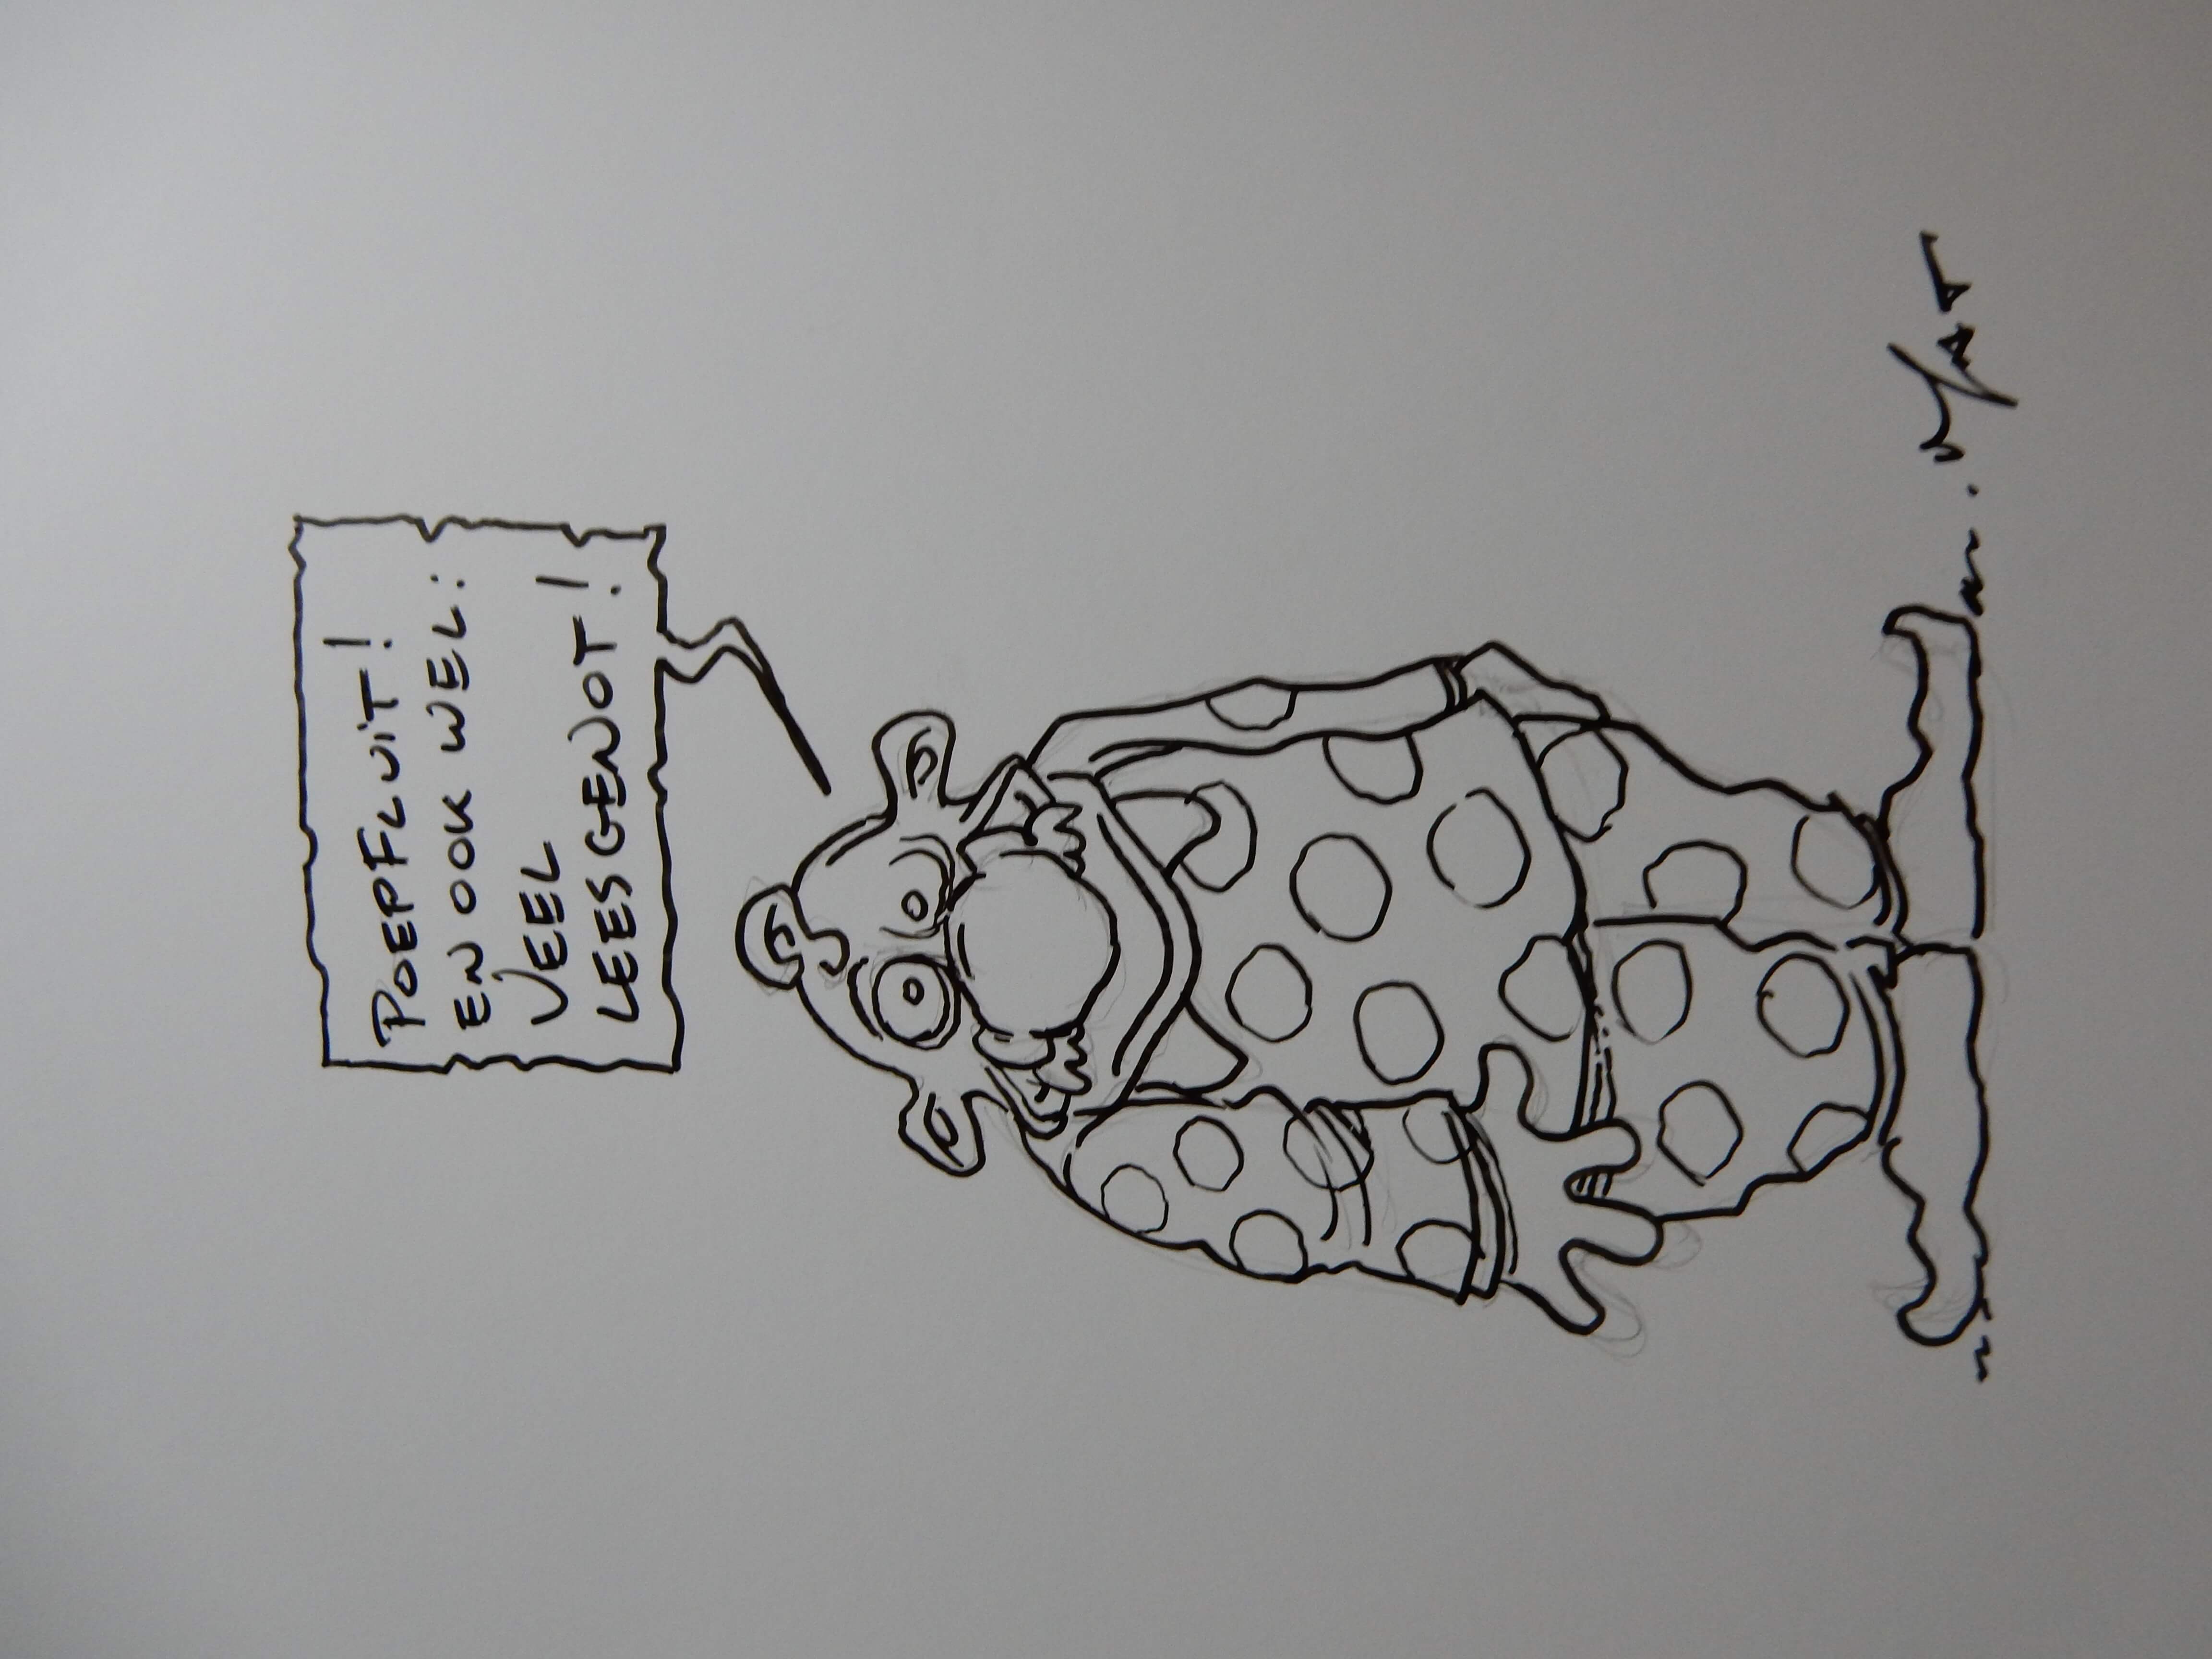 POEPFLUIT!
EN OOK WEL:
VEEL
LEESGENOT!
MAT